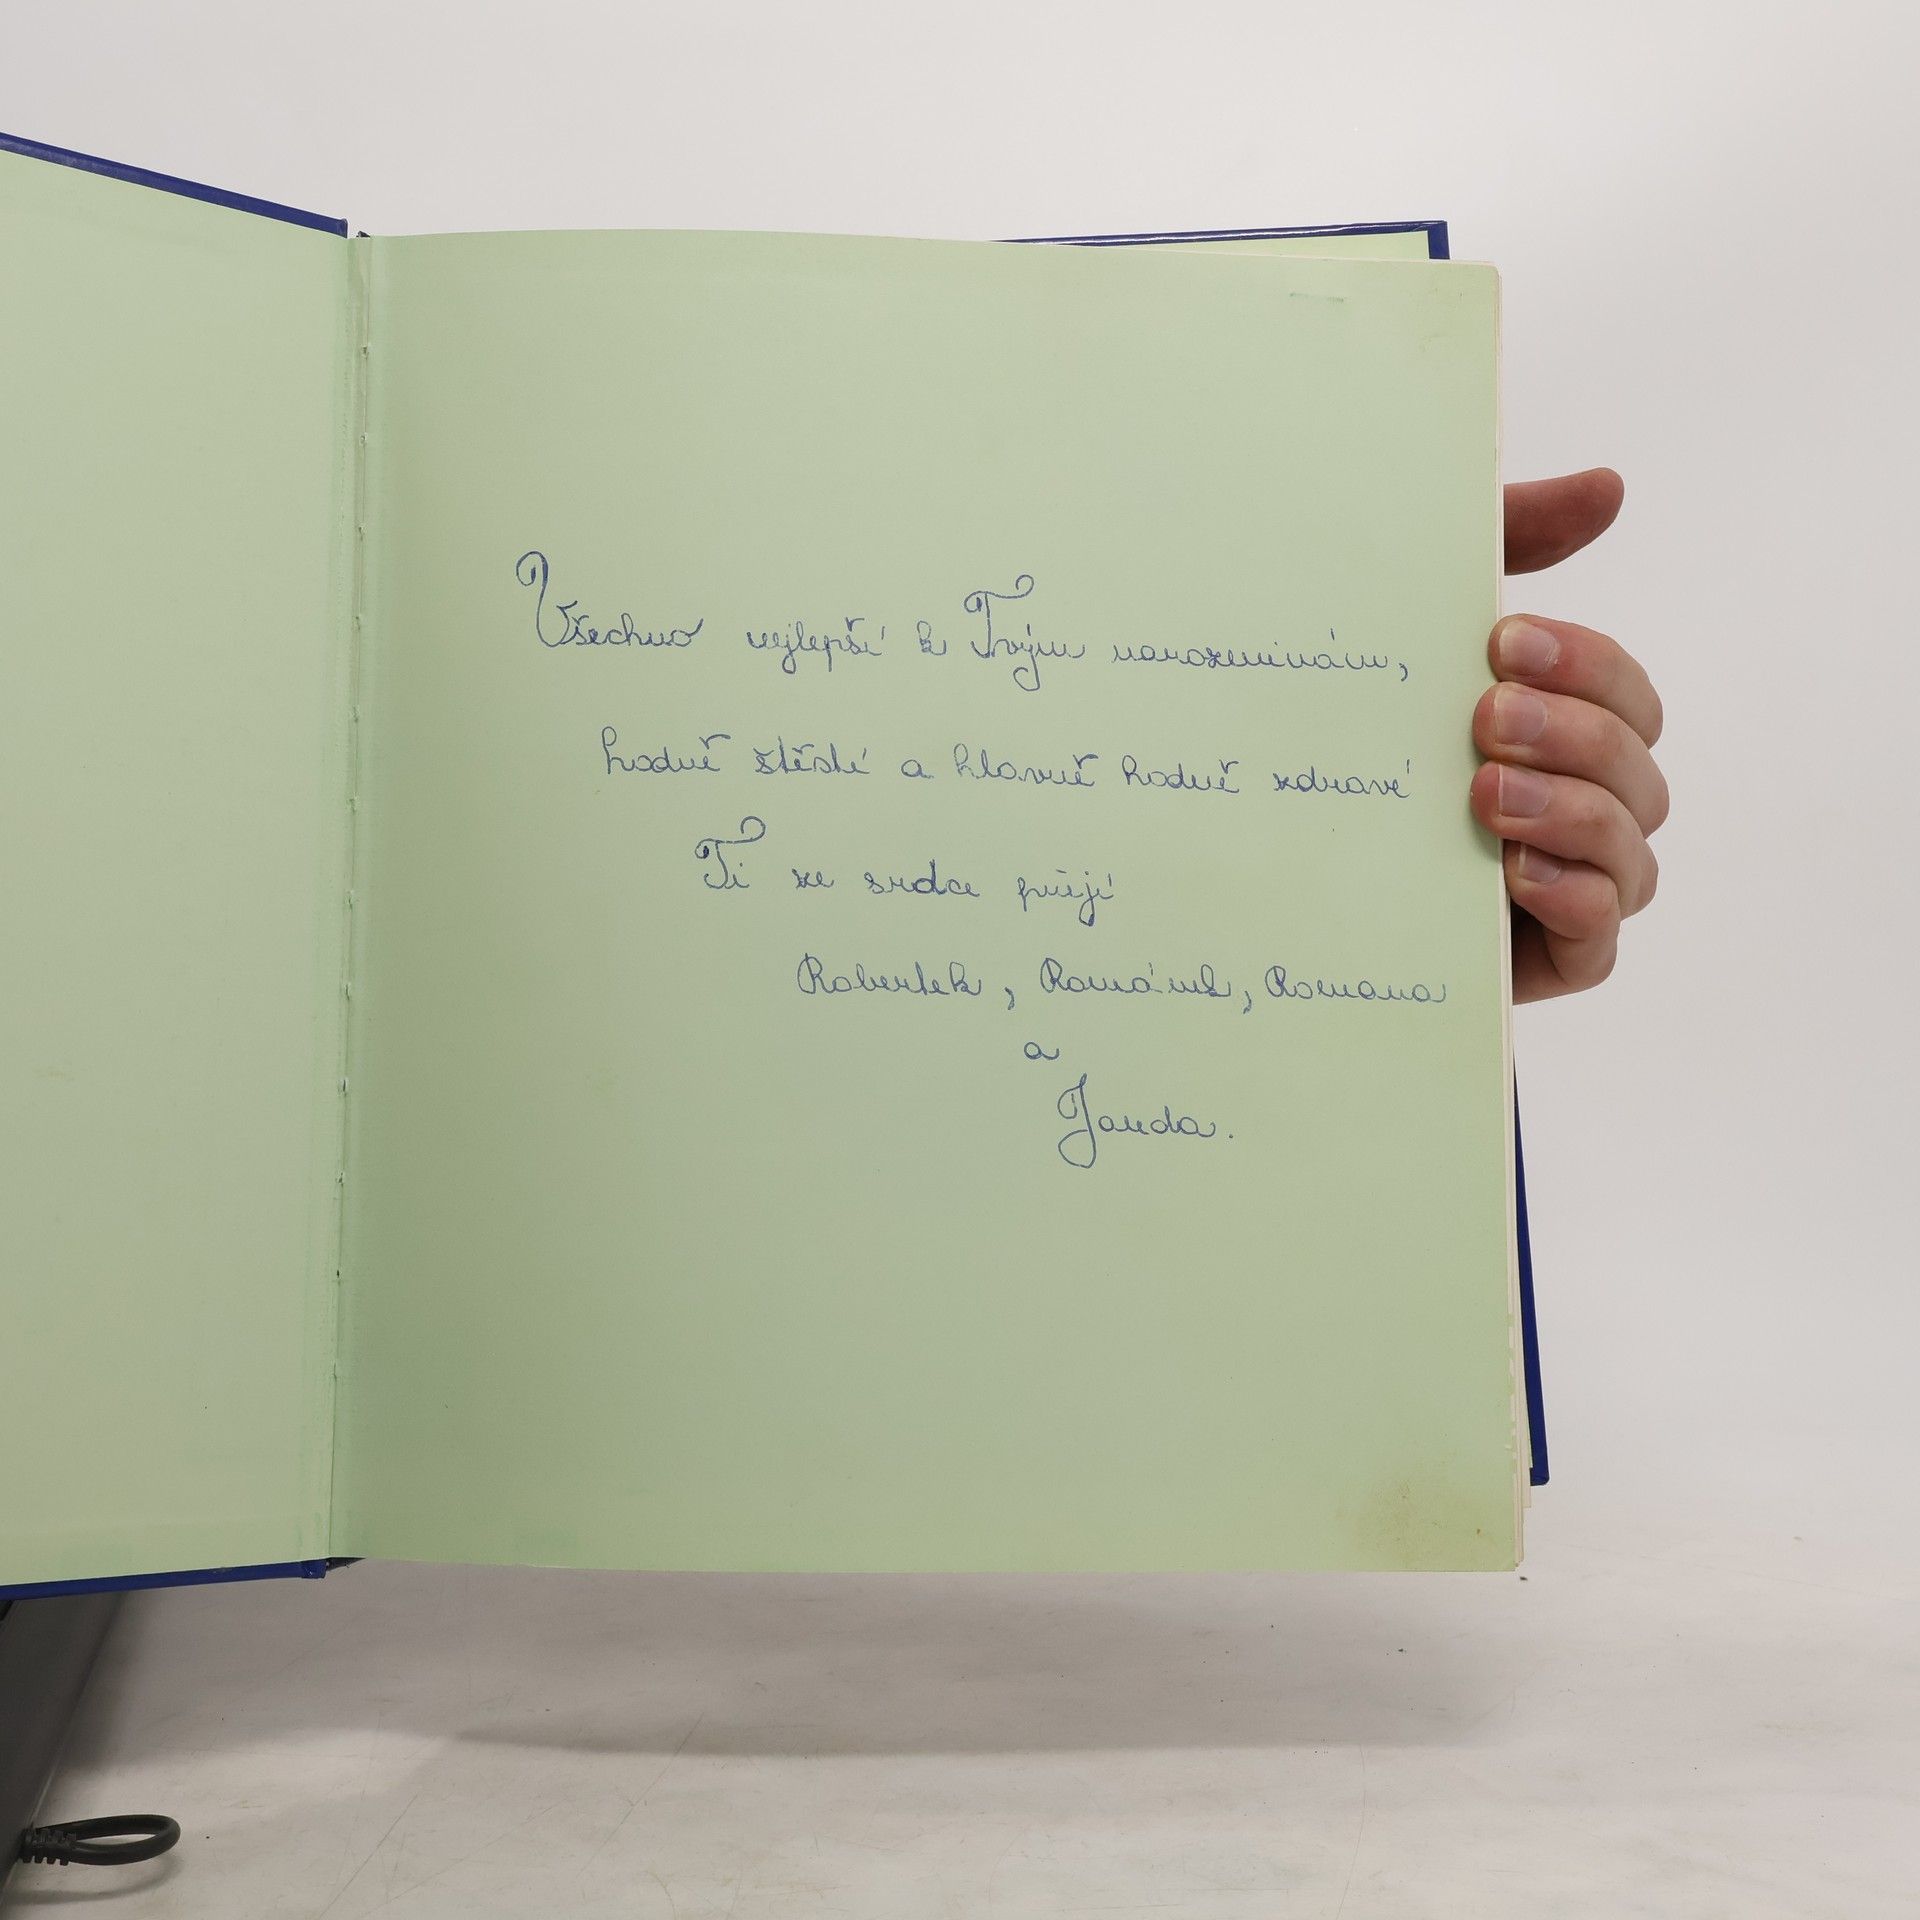 Všechno nejlepší k Tvým narozeninám,
hodně štěstí a hlavně hodně zdraví
Ti ze srdce přejí
Robertek, Románek, Romana
a
Janda.